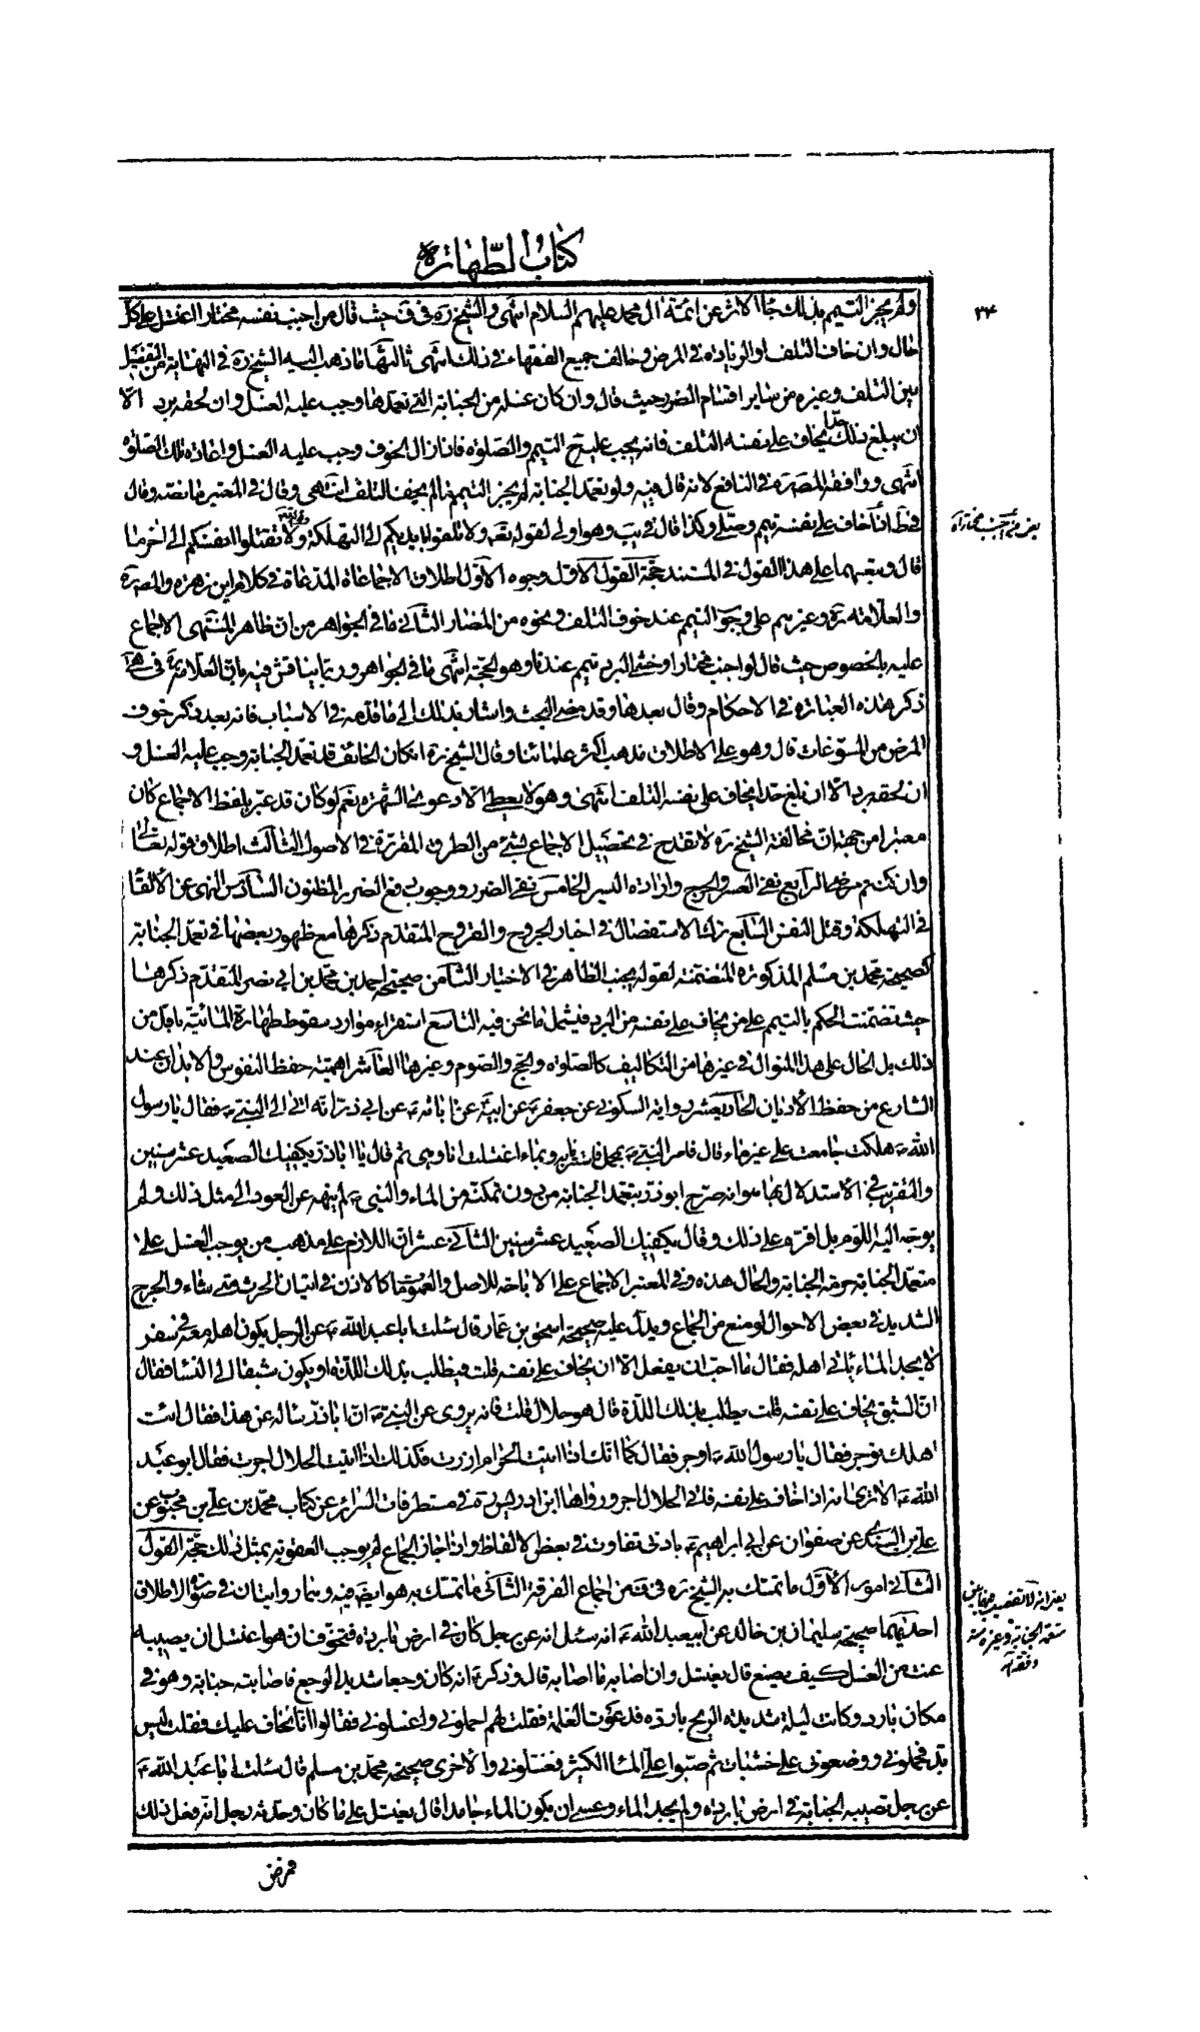 كتاب الطهارة
٣٤
ولم يجز التيمم بذلك جاء الاثر عن ائمة ال محمد عليهم السلام انتهى والشيخ ره في ف حيث قال من اجنب نفسه مختارا اغتسل على كل
حال وان خاف التلف او الزيادة في المرض وخالف جميع الفقهاء في ذلك انتهى ثالثها ما ذهب اليه الشيخ ره في النهاية من التفصيل
بين التلف وغيره من ساير اقسام الضرر حيث قال وان كان غسله من الجنابة التي تعمدها وجب عليه الغسل وان لحقه برد الا
ان يبلغ ذلك حدا يخاف على نفسه التلف فانه يجب عليه ح التيمم والصلوة فاذا زال الخوف وجب عليه الغسل واعادة تلك الصلوة
انتهى ووافقه المص ره في النافع لانه قال فيه ولو تعمد الجنابة لم يجز التيمم ما لم يخف التلف انتهى وقال في المعتبر ما نصه وقال
في ط اذا خاف على نفسه تيمم وصلى وكذا قال في يب وهو اولى لقوله تعه ولا تلقوا بايديكم الى التهلكة وقوله تعه ولا تقتلوا انفسكم الى اخر ما
يعني من اجنب مختارا
قال وتبعهما على هذا القول في المستند حجة القول الاول وجوه الاول اطلاق الاجماعات المدعاة في كلام ابن زهرة والمص ره
والعلامة ره وغيرهم على وجوب التيمم عند خوف التلف ونحوه من المضار الثاني ما في الجواهر من ان ظاهر المنتهى الاجماع
عليه بالخصوص حيث قال لو اجنب مختارا وخشى البرد تيمم عندنا وهو الحجة انتهى ما في الجواهر وربما يناقش فيه بان العلامة ره في هى
ذكر هذه العبارة في الاحكام وقال بعدها وقد مضى البحث واشار بذلك الى ما قدمه في الاسباب فانه بعد ذكر خوف
المرض من المسوغات قال وهو على الاطلاق مذهب اكثر علمائنا وقال الشيخ ره ان كان الخائف قد تعمد الجنابة وجب عليه الغسل و
ان لحقه برد الا ان بلغ حدا يخاف على نفسه التلف انتهى وهو لا يعطى الا دعوى الشهرة نعم لو كان قد عبر بلفظ الاجماع كان
معتبرا من جهة ان مخالفة الشيخ ره لا تقدح في تحصيل الاجماع بشئ من الطرق المقررة في الاصول الثالث اطلاق قوله تعالى
وان كنتم مرضى الرابع نفي العسر والحرج وارادة اليسر الخامس نفي الضرر ووجوب دفع الضرر المظنون السادس النهى عن الالقاء
في التهلكة وقتل النفس السابع ترك الاستفصال في اخبار الجروح والقروح المتقدم ذكرها مع ظهور بعضها في تعمد الجنابة
كصحيحة محمد بن مسلم المذكورة المتضمنة لقوله يجنب الظاهر في الاختيار الثامن صحيحة احمد بن محمد بن ابي نصر المتقدم ذكرها
حيث تضمنت الحكم بالتيمم على من يخاف على نفسه من البرد فيشمل ما نحن فيه التاسع استقراء موارد سقوط طهارة المائية باقل من
ذلك بل الحال على هذا المنوال في غيرها من التكاليف كالصلوة والحج والصوم وغيرها العاشر اهمية حفظ النفوس والابدان عند
الشارع من حفظ الاديان الحادى عشر رواية السكوني عن جعفر ع عن ابيه عن ابائه ع عن ابي ذر انه اتى الى النبي ص فقال يا رسول
الله ص هلكت جامعت على غير ماء قال فامر النبي ص بمحمل فاستترنا به وبماء اغتسلت انا وهى ثم قال يا ابا ذر يكفيك الصعيد عشر سنين
والتقريب في الاستدلال بها هو انه صرح ابو ذر بتعمد الجنابة من دون تمكنه من الماء والنبي ص لم ينهه عن العود الى مثل ذلك ولم
يوجه اليه اللوم بل اقره على ذلك وقال يكفيك الصعيد عشر سنين الثاني عشر ان اللازم على مذهب من يوجب الغسل على
متعمد الجنابة حرمة الجنابة والحال هذه وفي المعتبر الاجماع على الاباحة للاصل والعمومات كالاذن في اتيان الحرث متى شاء والحرج
الشديد في بعض الاحوال لو منع من الجماع ويدل عليه صحيحة اسحق بن عمار قال سئلت ابا عبد الله ع عن الرجل يكون اهله معه في سفر
لا يجد الماء ياتى اهله فقال ما احب ان يفعل الا ان يخاف على نفسه قلت فيطلب بذلك اللذة او يكون شبقا الى النساء فقال
ان الشبق يخاف على نفسه قلت يطلب بذلك اللذة قال هو حلال قلت فانه يروى عن النبي ص ان ابا ذر ساله عن هذا فقال ائت
اهلك توجر فقال يا رسول الله ص اوجر فقال كما انك اذا اتيت الحرام ازرت فكذلك اذا اتيت الحلال اجرت فقال ابو عبد
الله ع الا ترى انه اذا خاف على نفسه فاتى الحلال اجر ورواها ابن ادريس ره في مستطرفات السرائر عن كتاب محمد بن على بن محبوب عن
على بن السندى عن صفوان عن ابي ابراهيم ع بادنى تفاوت في بعض الالفاظ واذا جاز الجماع لم يوجب العقوبة بمثل ذلك حجة القول
الثاني امور الاول ما تمسك به الشيخ ره في ف من اجماع الفرقة الثاني ما تمسك به هو ايضا فيه وبما روايتان في صورة الاطلاق
يعني انه لا تفصيل فيهما بين متعمد الجنابة وغيره منه
احديهما صحيحة سليمان بن خالد عن ابي عبد الله ع انه سئل انه عن رجل كان في ارض باردة فتخوف ان هو اغتسل ان يصيبه
عنت من الغسل كيف يصنع قال يغتسل وان اصابه ما اصابه قال وذكر انه كان وجعا شديد الوجع فاصابته جنابة وهو في
مكان بارد وكانت ليلة شديدة الريح باردة فدعوت الغلمة فقلت لهم احملوني واغسلوني فقالوا انا نخاف عليك فقلت ليس
بد فحملوني ووضعوني على خشبات ثم صبوا على الماء الكثير فغسلوني والاخرى صحيحة محمد بن مسلم قال سئلت ابا عبد الله ع
عن رجل تصيبه الجنابة في ارض باردة ولم يجد الماء وعسى ان يكون الماء جامدا قال يغتسل على ما كان وحدثه رجل انه فعل ذلك
فمرض